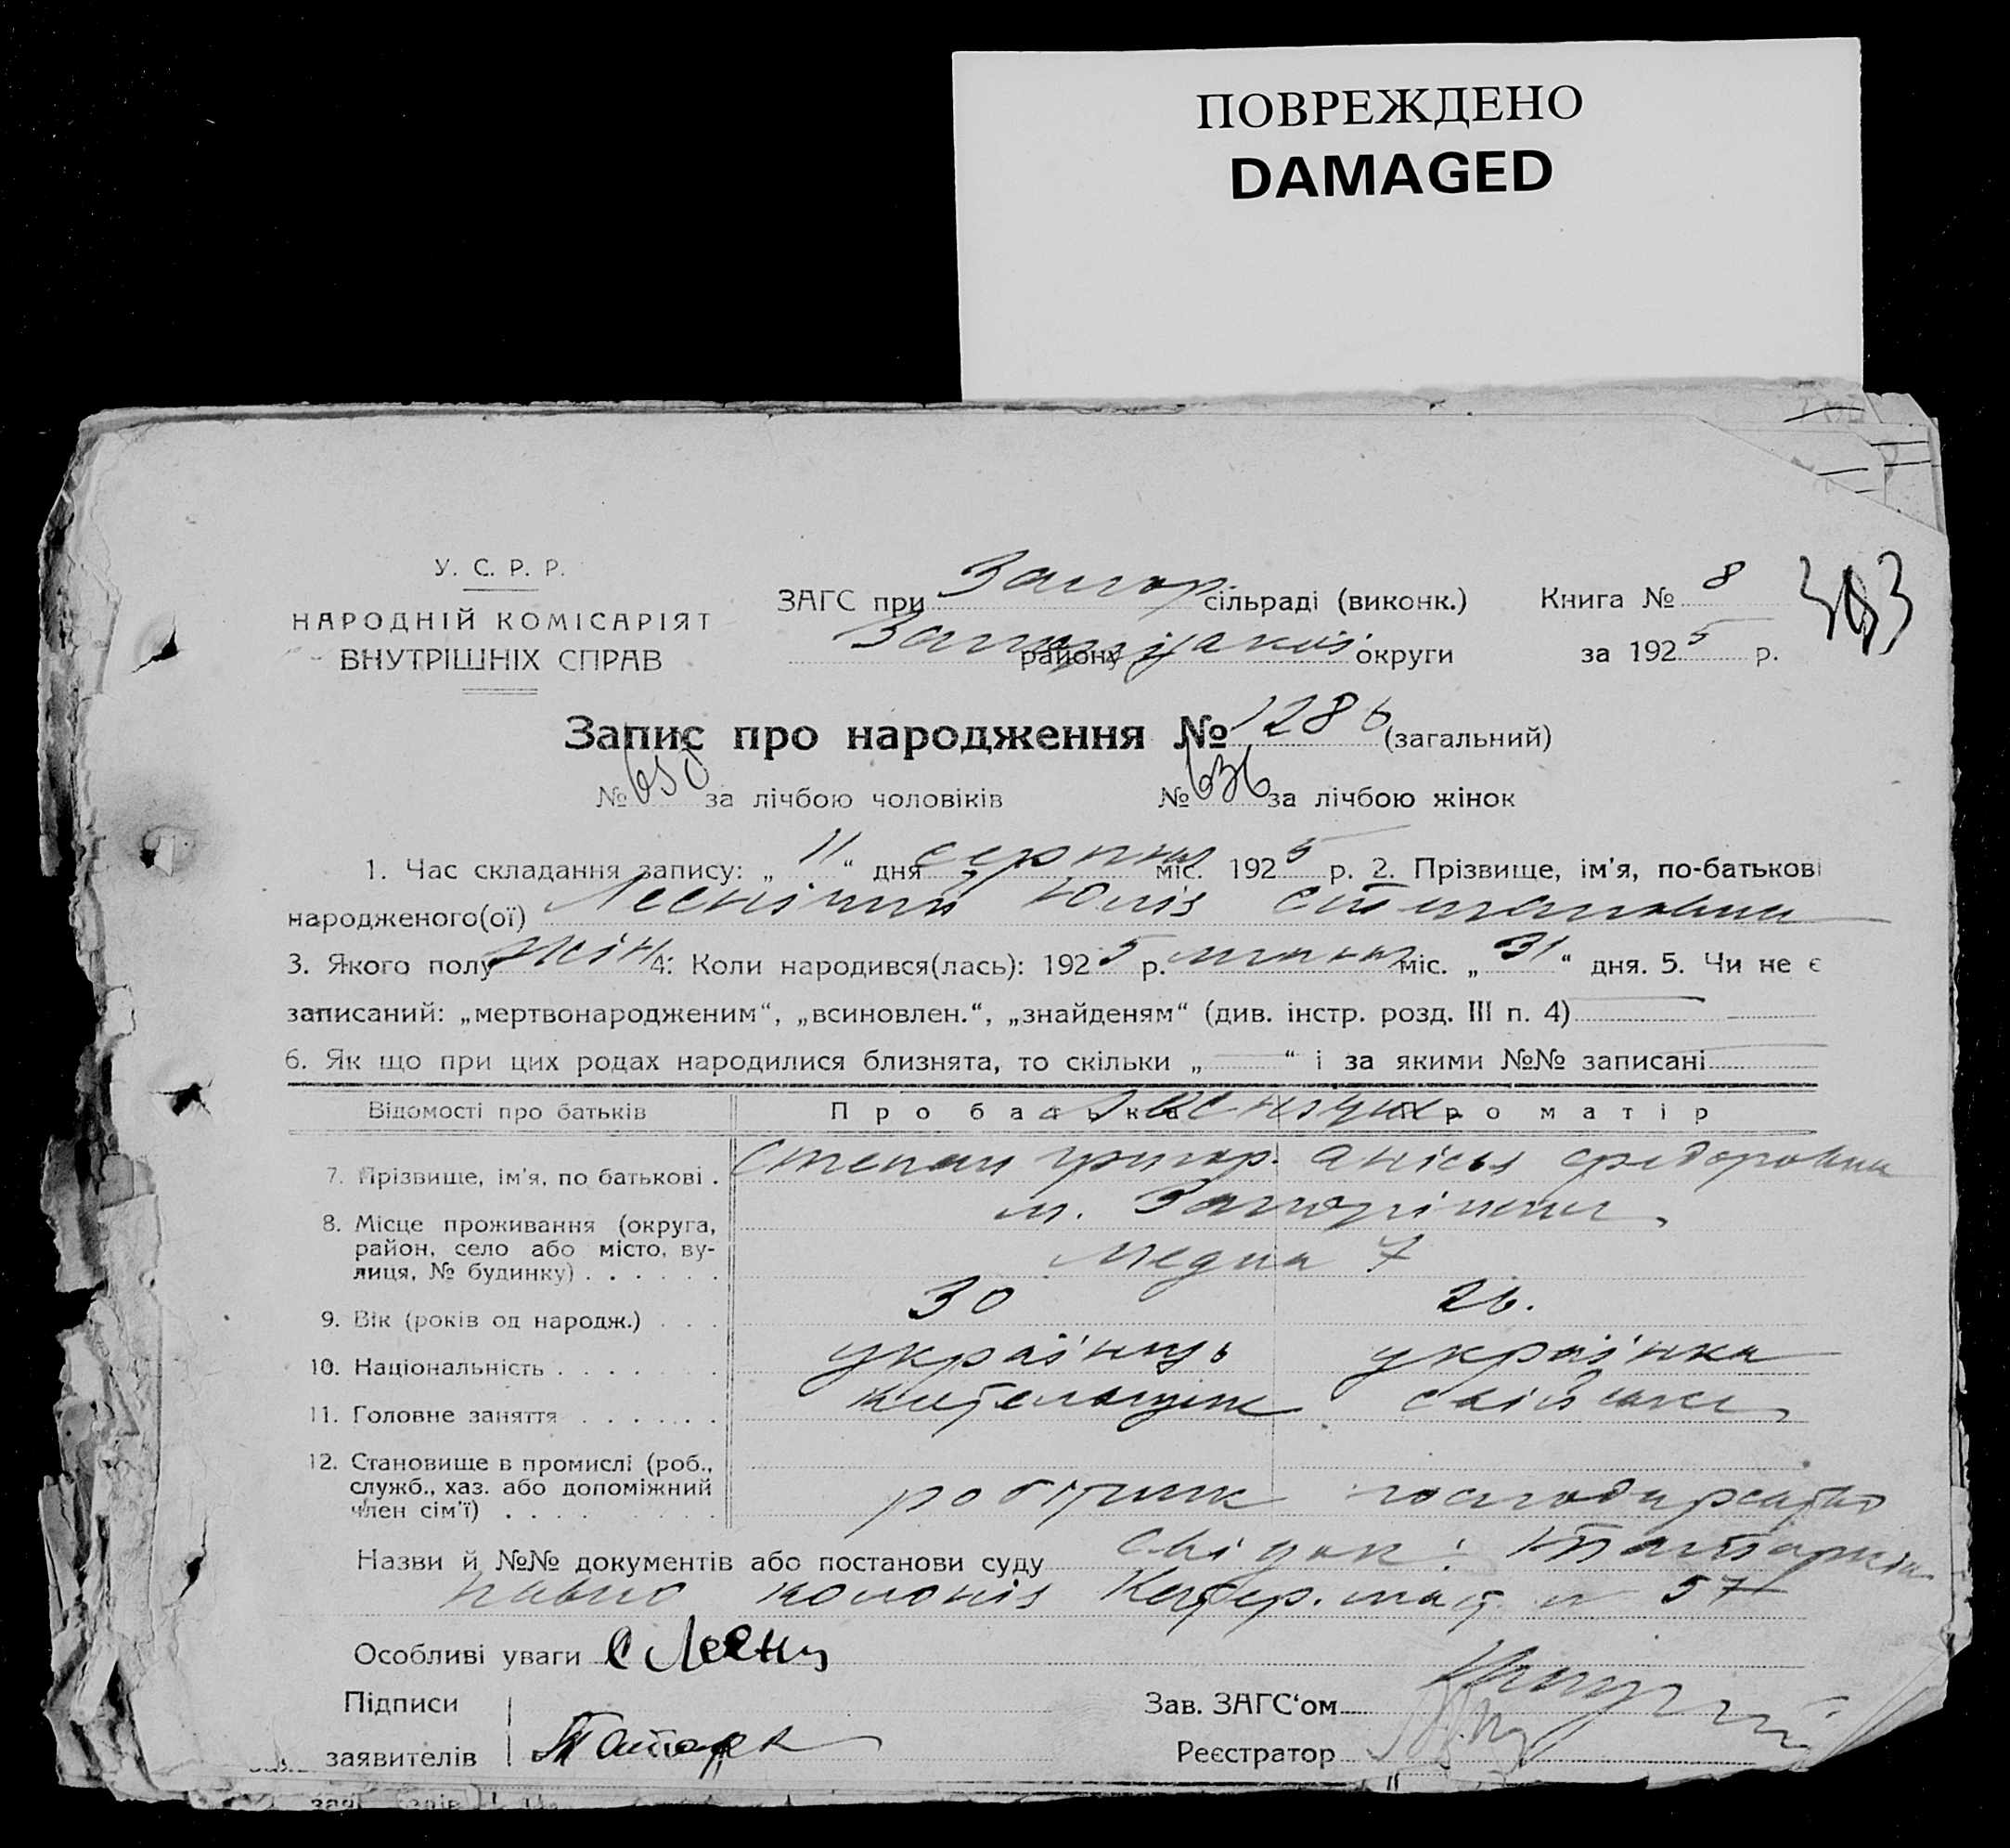 ПОВРЕЖДЕНО
DAMAGED
У. С. Р. Р.
НАРОДНІЙ КОМІСАРІЯТ
ВНУТРІШНІХ СПРАВ
ЗАГС при Запор сільраді (виконк.)
району Запорізької округи
Книга № 8
за 1925 р.
Запис про народження № 1286 (загальний)
№ 650 за лічбою чоловіків № 636 за лічбою жінок
1. Час складання запису: „11“ дня серпня міс. 1925 р. 2. Прізвище, ім'я, по-батькові
народженого(ої) Юлія Степановна
3. Якого полу жін 4: Коли народився(лась): 1925 р. липня міс. „31“ дня. 5. Чи не є
записаний: „мертвонародженим“, „всиновлен.“, „знайденям“ (див. інстр. розд. III п. 4)
6. Як що при цих родах народилися близнята, то скільки „ “ і за якими №№ записані
Відомості про батьків Про батька Про матір
7. Прізвище, ім'я, по батькові . Степан Григор. Анісья Федоровна
8. Місце проживання (округа, м. Запоріжжя
район, село або місто, ву-
лиця, № будинку) . . . . . . 7
9. Вік (років од народж.) . . . 30 26.
10. Національність . . . . . . . українць українка
11. Головне заняття . . . . . .
12. Становище в промислі (роб.,
служб., хаз. або допоміжний
член сім'ї) . . . . робітник
Назви й №№ документів або постанови суду свідок:
Павло колонія № 57
Особливі уваги С Лесні
Підписи
заявителів
Зав. ЗАГС‘ом
Реєстратор